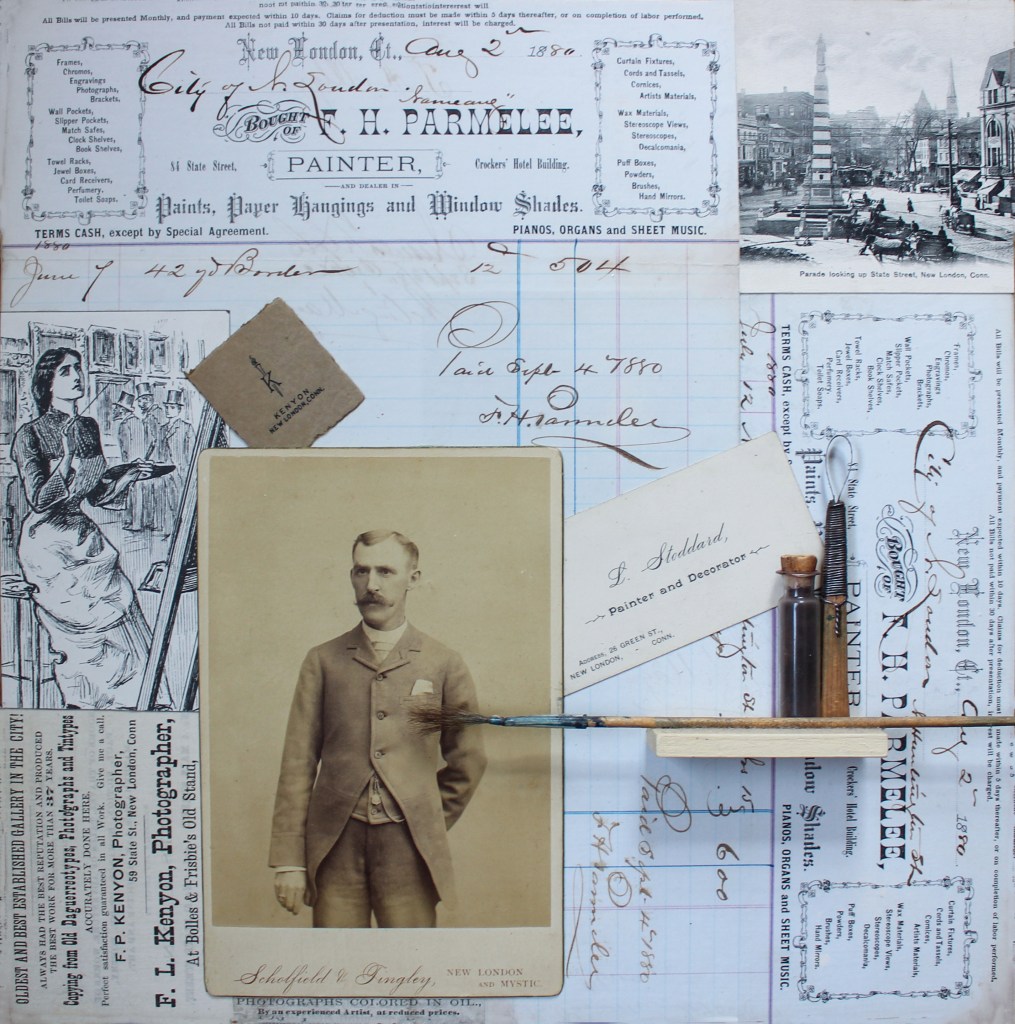 All Bills will be presented Monthly, and payment expected within 10 days. Claims for deduction must be made within 5 days thereafter, or on completion of labor performed.
All Bills not paid within 30 days after presentation, interest will be charged.
New London, Ct., Aug 2 1880
City of N. London
Frames,
Chromos,
Engravings
Photographs,
Brackets.
Wall Pockets,
Slipper Pockets,
Match Safes,
Clock Shelves,
Book Shelves,
Towel Racks,
Jewel Boxes,
Card Receivers,
Perfumery.
Toilet Soaps.
BOUGHT OF F. H. PARMELEE,
84 State Street, PAINTER, Crockers' Hotel Building.
AND DEALER IN
Paints, Paper Hangings and Window Shades.
Curtain Fixtures,
Cords and Tassels,
Cornices,
Artists Materials,
Wax Materials,
Stereoscope Views,
Stereoscopes,
Decalcomania,
Puff Boxes,
Powders,
Brushes,
Hand Mirrors.
TERMS CASH, except by Special Agreement. PIANOS, ORGANS and SHEET MUSIC.
1880
June 7 42 yd Border 12 504
Paid Sept 4 1880
F. H. Parmelee
Parade looking up State Street, New London, Conn.
K
KENYON
NEW LONDON, CONN.
L. Stoddard,
Painter and Decorator
ADDRESS, 26 GREEN ST.,
NEW LONDON, - CONN.
OLDEST AND BEST ESTABLISHED GALLERY IN THE CITY!
ALWAYS HAD THE BEST REPUTATION AND PRODUCED
THE BEST WORK FOR MORE THAN 37 YEARS.
Copying from Old Daguerreotypes, Photographs and Tintypes
ACCURATELY DONE HERE.
Perfect satisfaction guaranteed in all Work. Give me a call.
F. P. KENYON, Photographer,
59 State St., New London, Conn
F. L. Kenyon, Photographer,
At Bolles & Frisbie's Old Stand,
Scholfield & Tingley, NEW LONDON
AND MYSTIC.
PHOTOGRAPHS COLORED IN OIL.,
By an experienced Artist, at reduced prices.
All Bills will be presented Monthly, and payment expected within 10 days. Claims for deduction must be made within 5 days thereafter, or on completion of labor performed.
All Bills not paid within 30 days after presentation, interest will be charged.
New London, Ct., Aug 2 1880
City of N. London
Frames,
Chromos,
Engravings
Photographs,
Brackets.
Wall Pockets,
Slipper Pockets,
Match Safes,
Clock Shelves,
Book Shelves,
Towel Racks,
Jewel Boxes,
Card Receivers,
Perfumery.
Toilet Soaps.
BOUGHT OF H. PARMELEE,
84 State Street, PAINTER Crockers' Hotel Building.
Paints, Shades.
Curtain Fixtures,
Cords and Tassels,
Cornices,
Artists Materials,
Wax Materials,
Stereoscope Views,
Stereoscopes,
Decalcomania,
Puff Boxes,
Powders,
Brushes,
Hand Mirrors.
TERMS CASH, except by PIANOS, ORGANS and SHEET MUSIC.
1880
July 12 15 3 600
Paid Sept 4 1880
F H Parmelee